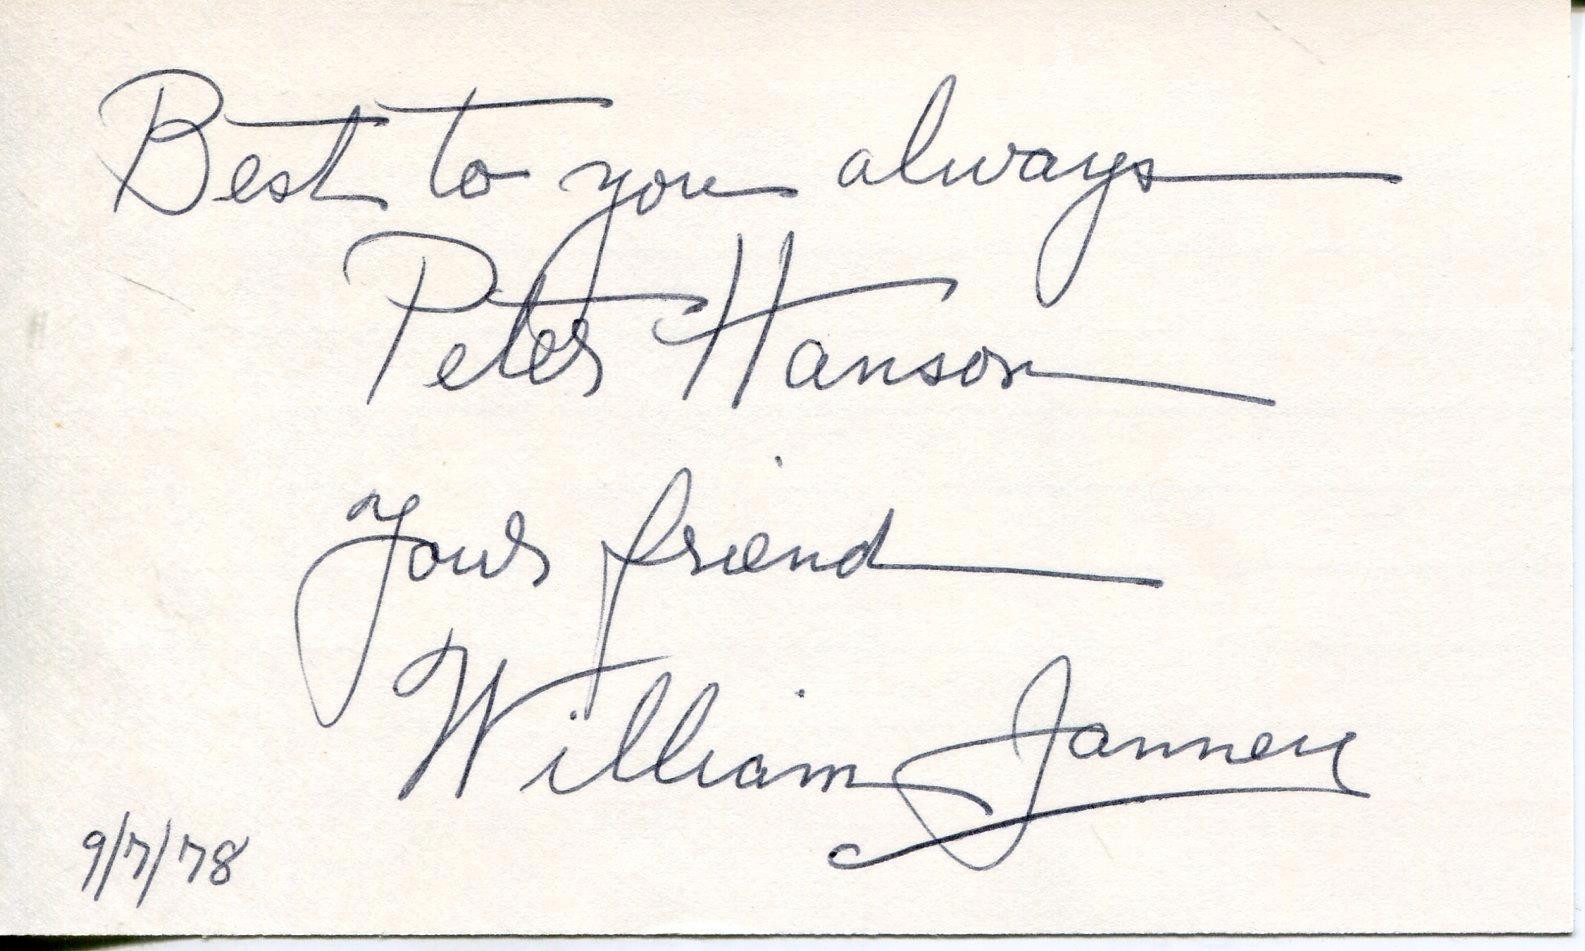 Best to you always
Peter Hanson
Your friend
William Janney
9/7/78